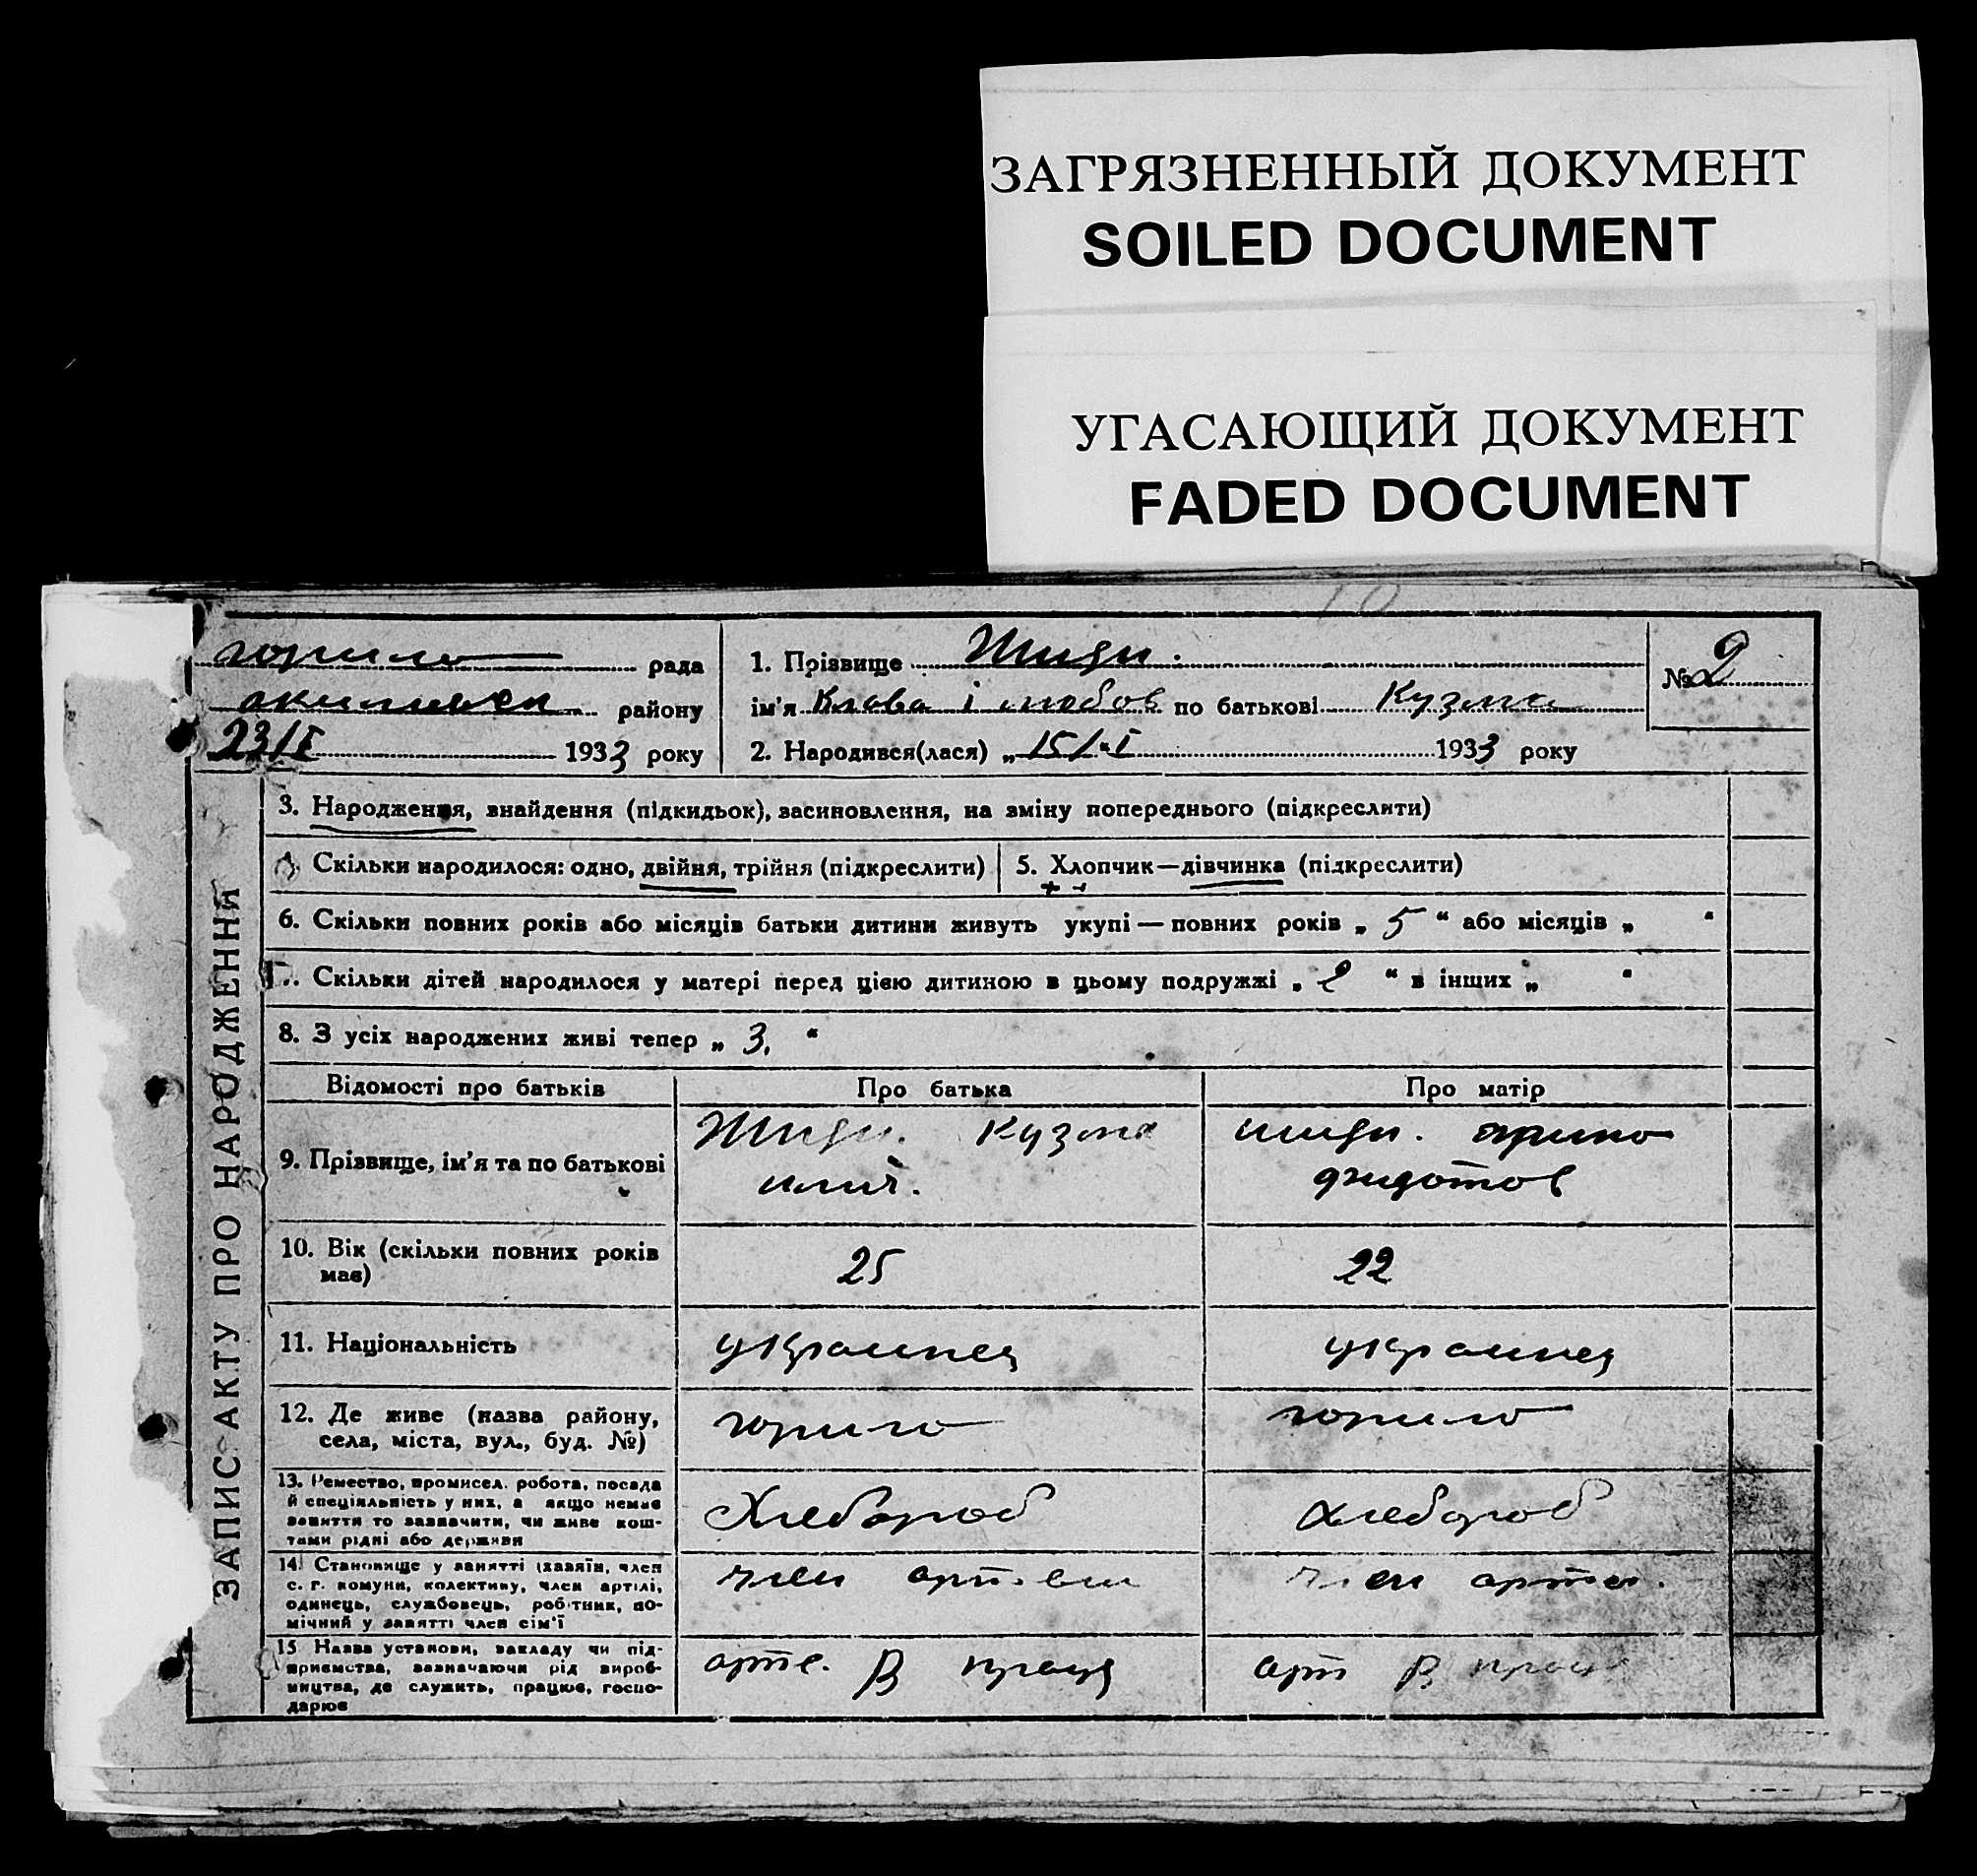 ЗАГРЯЗНЕННЫЙ ДОКУМЕНТ
SOILED DOCUMENT
УГАСАЮЩИЙ ДОКУМЕНТ
FADED DOCUMENT
рада
району
23/I 1933 року
1. Прізвище
ім'я Клава і любов по батькові Кузма
2. Народився(лася) „ 15/I 1933 року
№ 2
ЗАПИС АКТУ ПРО НАРОДЖЕННЯ
3. Народження, знайдення (підкидьок), засиновлення, на зміну попереднього (підкреслити)
Скільки народилося: одно, двійня, трійня (підкреслити)
5. Хлопчик—дівчинка (підкреслити)
6. Скільки повних років або місяців батьки дитини живуть укупі — повних років „ 5 “ або місяців „ “
Скільки дітей народилося у матері перед цією дитиною в цьому подружжі „ 2 “ в інших „ “
8. З усіх народжених живі тепер „ 3. “
Відомості про батьків Про батька Про матір
9. Прізвище, ім'я та по батькові
Кузма
10. Вік (скільки повних років має)
25 22
11. Національність
украинец украинец
12. Де живе (назва району, села, міста, вул., буд. №)
13. Ремество, промисел, робота, посада
й спеціяльність у них, а якщо немає
заняття то зазначити, чи живе кош-
тами рідні або держави
Хлебороб хлебороб
14. Становище у занятті (хазяїн, член
с. г. комуни, колективу, член артілі,
одинець, службовець, робітник, по-
мічний у занятті член сім'ї
член артели член артел.
15 Назва установи, закладу чи під-
приємства, зазначаючи рід вироб-
ництва, де служить, працює, госпо-
дарює
арте. В праця арт В